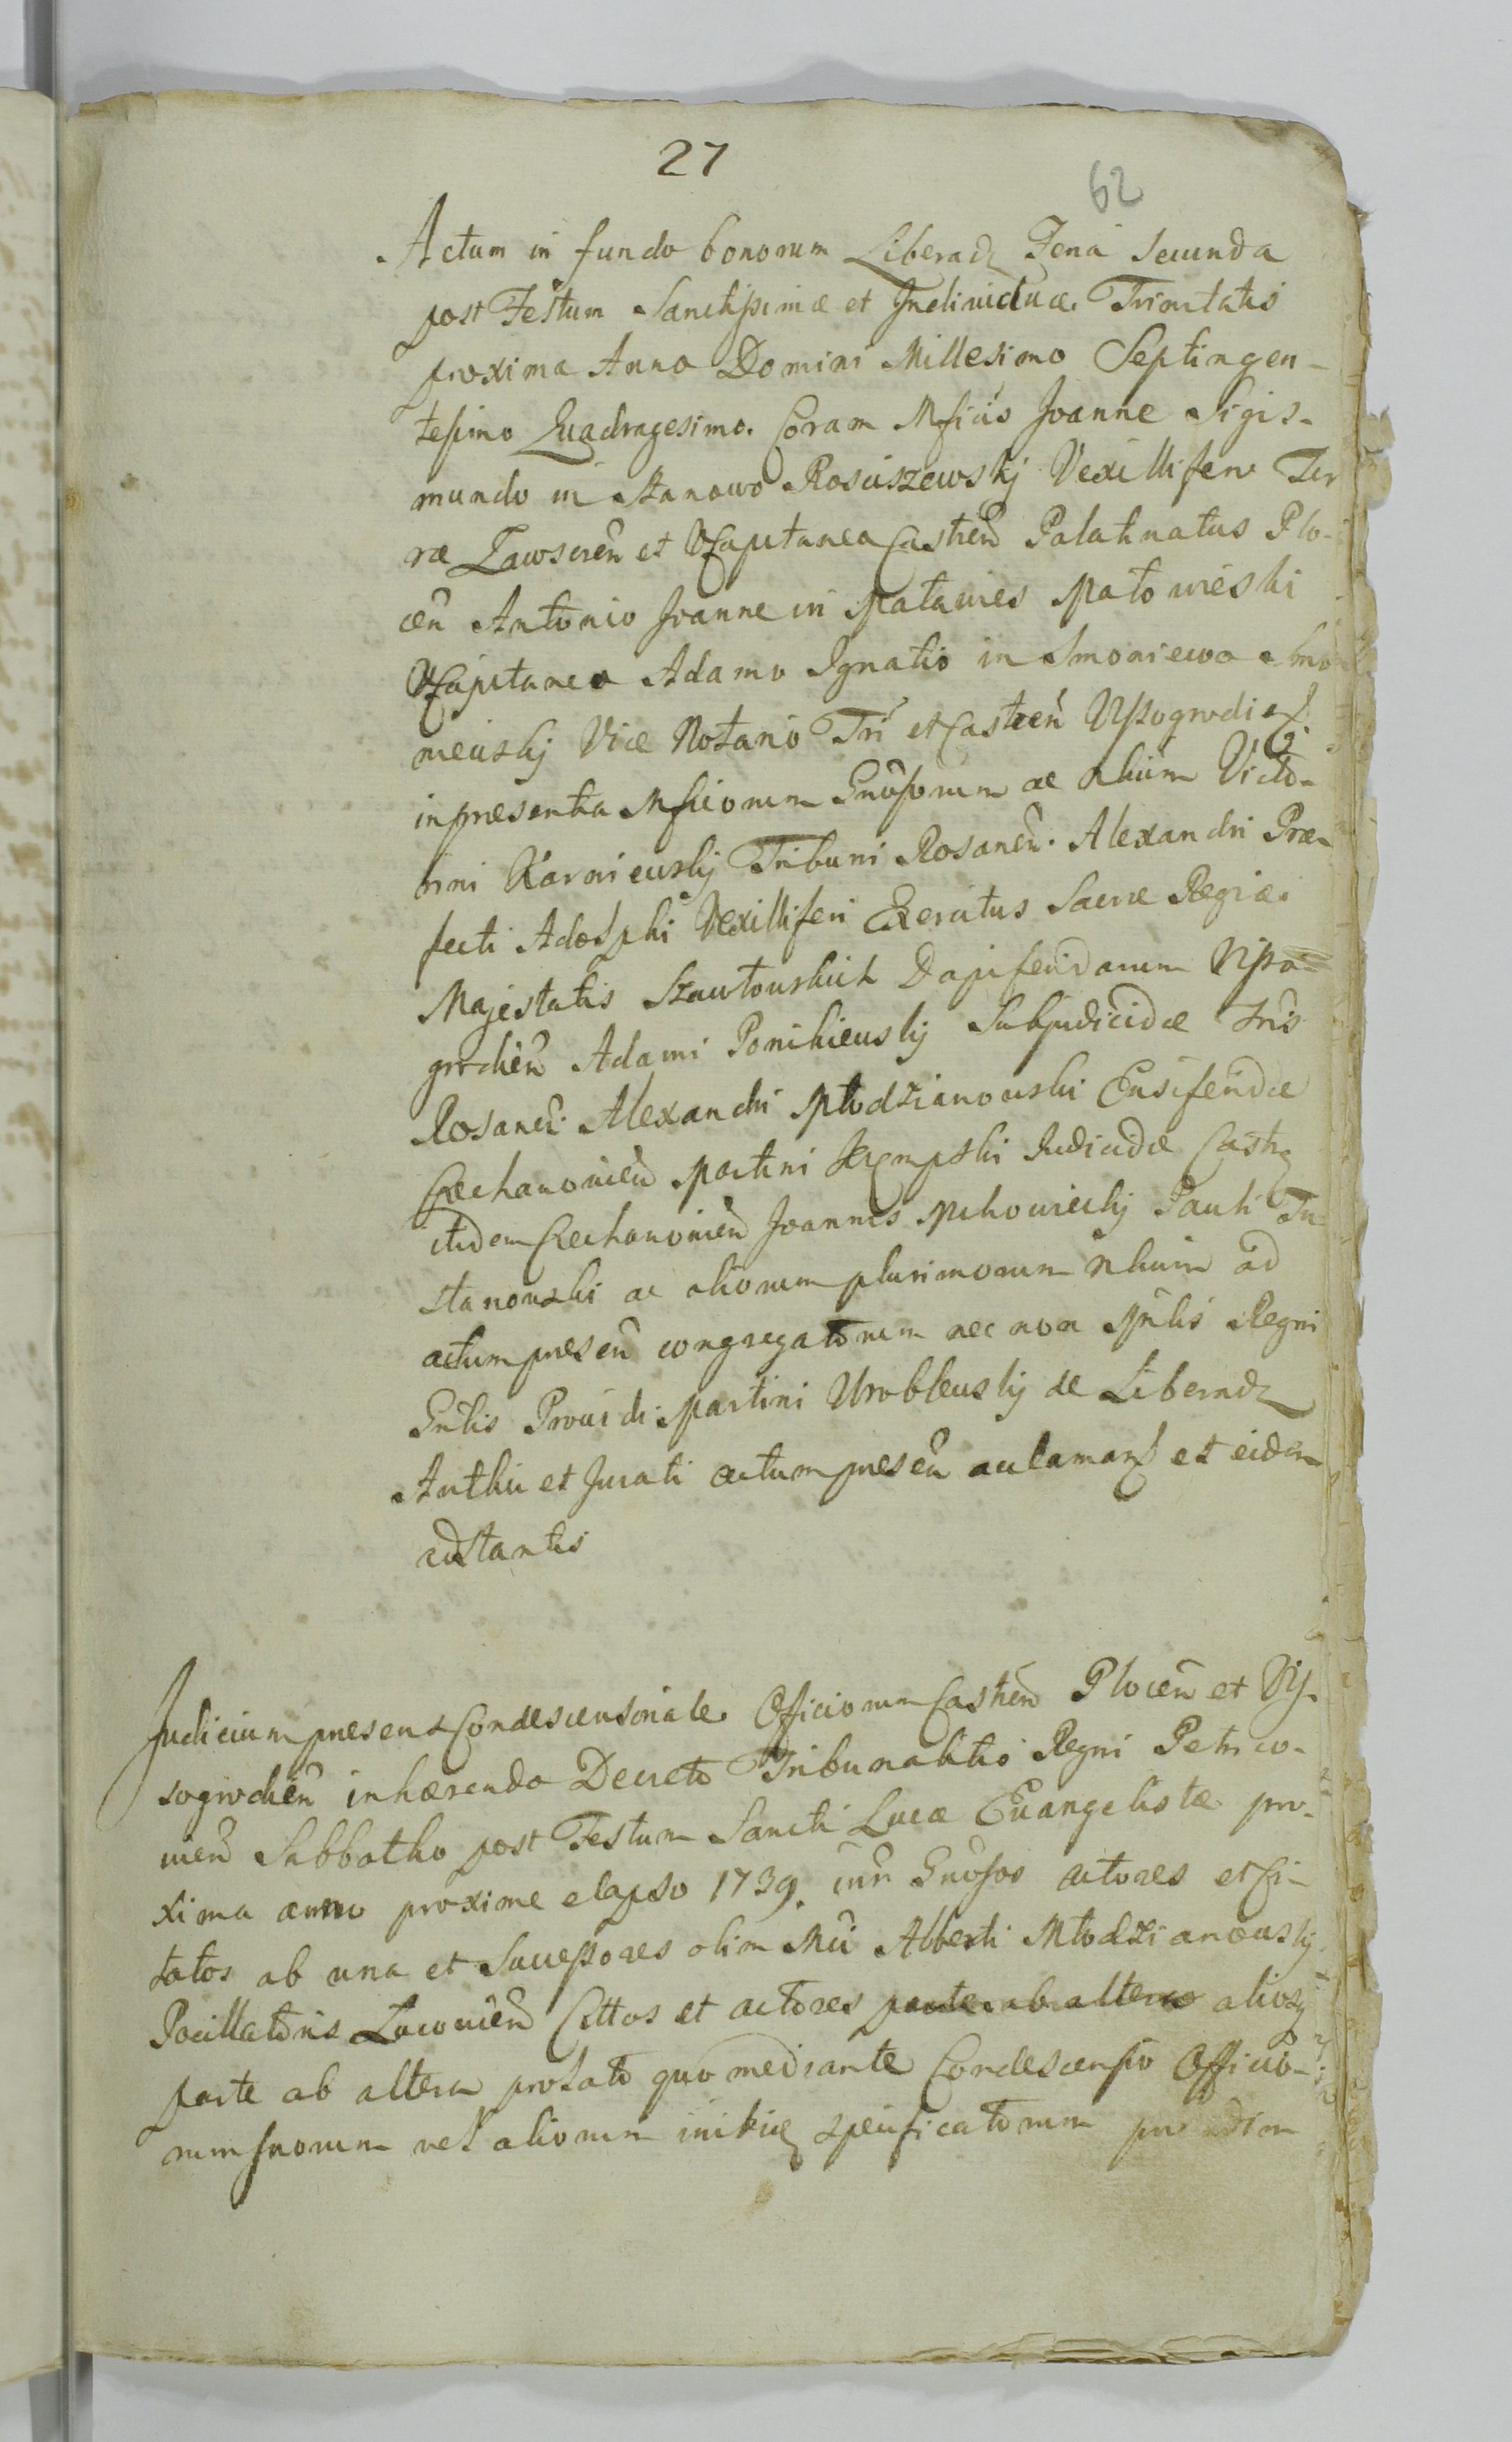 27
62
Actum in fundo bonorum Liberadz Feria Secunda
post Festum Sanctissimæ et Individuæ Trinitatis
proxima Anno Domini Millesimo Septingen-
tesimo Quadragesimo. Coram Mficis Joanne Sigis-
mundo in Stanowo Rosciszewskj Vexillifero Ter
ræ Zawscren et VCapitaneo Castren Palatinatus Plo-
cen Antonio Joanne in Maławies Małowieski
VCapitaneo Adamo Ignatio in Smoniewo Smo
niewskj Vice Notario Tri et Castren Vyssogrodien
in præsentia Mficorum Gnosorum ac Nlium Victo-
rini Karniewskj Tribuni Rosanen. Alexandri Præ-
fecti Adolphi Vexilliferi Exercitus Sacræ Regiæ
Majestatis Szawłowskich Dapiferidarum Visso-
grodien Adami Ponikiewskj Subjudicidæ Tris
Rosanen. Alexandri Młodzianowski Ensiferidæ
Ciechanovien Martini Kempski Judicidæ Castr
itidem Ciechanovien Joannis Mchowieckj Pauli
stanowski ac aliorum plurimorum Nlium ad
actum præsen congregatorum nec non Mrlis Regni
Gnlis Providi Martini Wroblewskj de Liberadz
Authci et Jurati actum præsen acclaman et eidem
adstantis
Judicium præsens Condescensoriale Officiorum Castren Plocen et Vy-
sogrodien inhærendo Decreto Tribunalitio Regni Petrico-
vien Sabbatho post Festum Sancti Lucæ Evangelistæ pro-
xima anno proxime elapso 1739. intr Gnosos actores et Ci-
tatos ab una et Successores olim Mci Alberti Młodzianowskj
Pocillatoris Zacovien Cittos et actores parte ab altera aliosq
parte ab altera prolato quo mediante Condescensio Officio-
rum suorum vel aliorum specificatorum pro